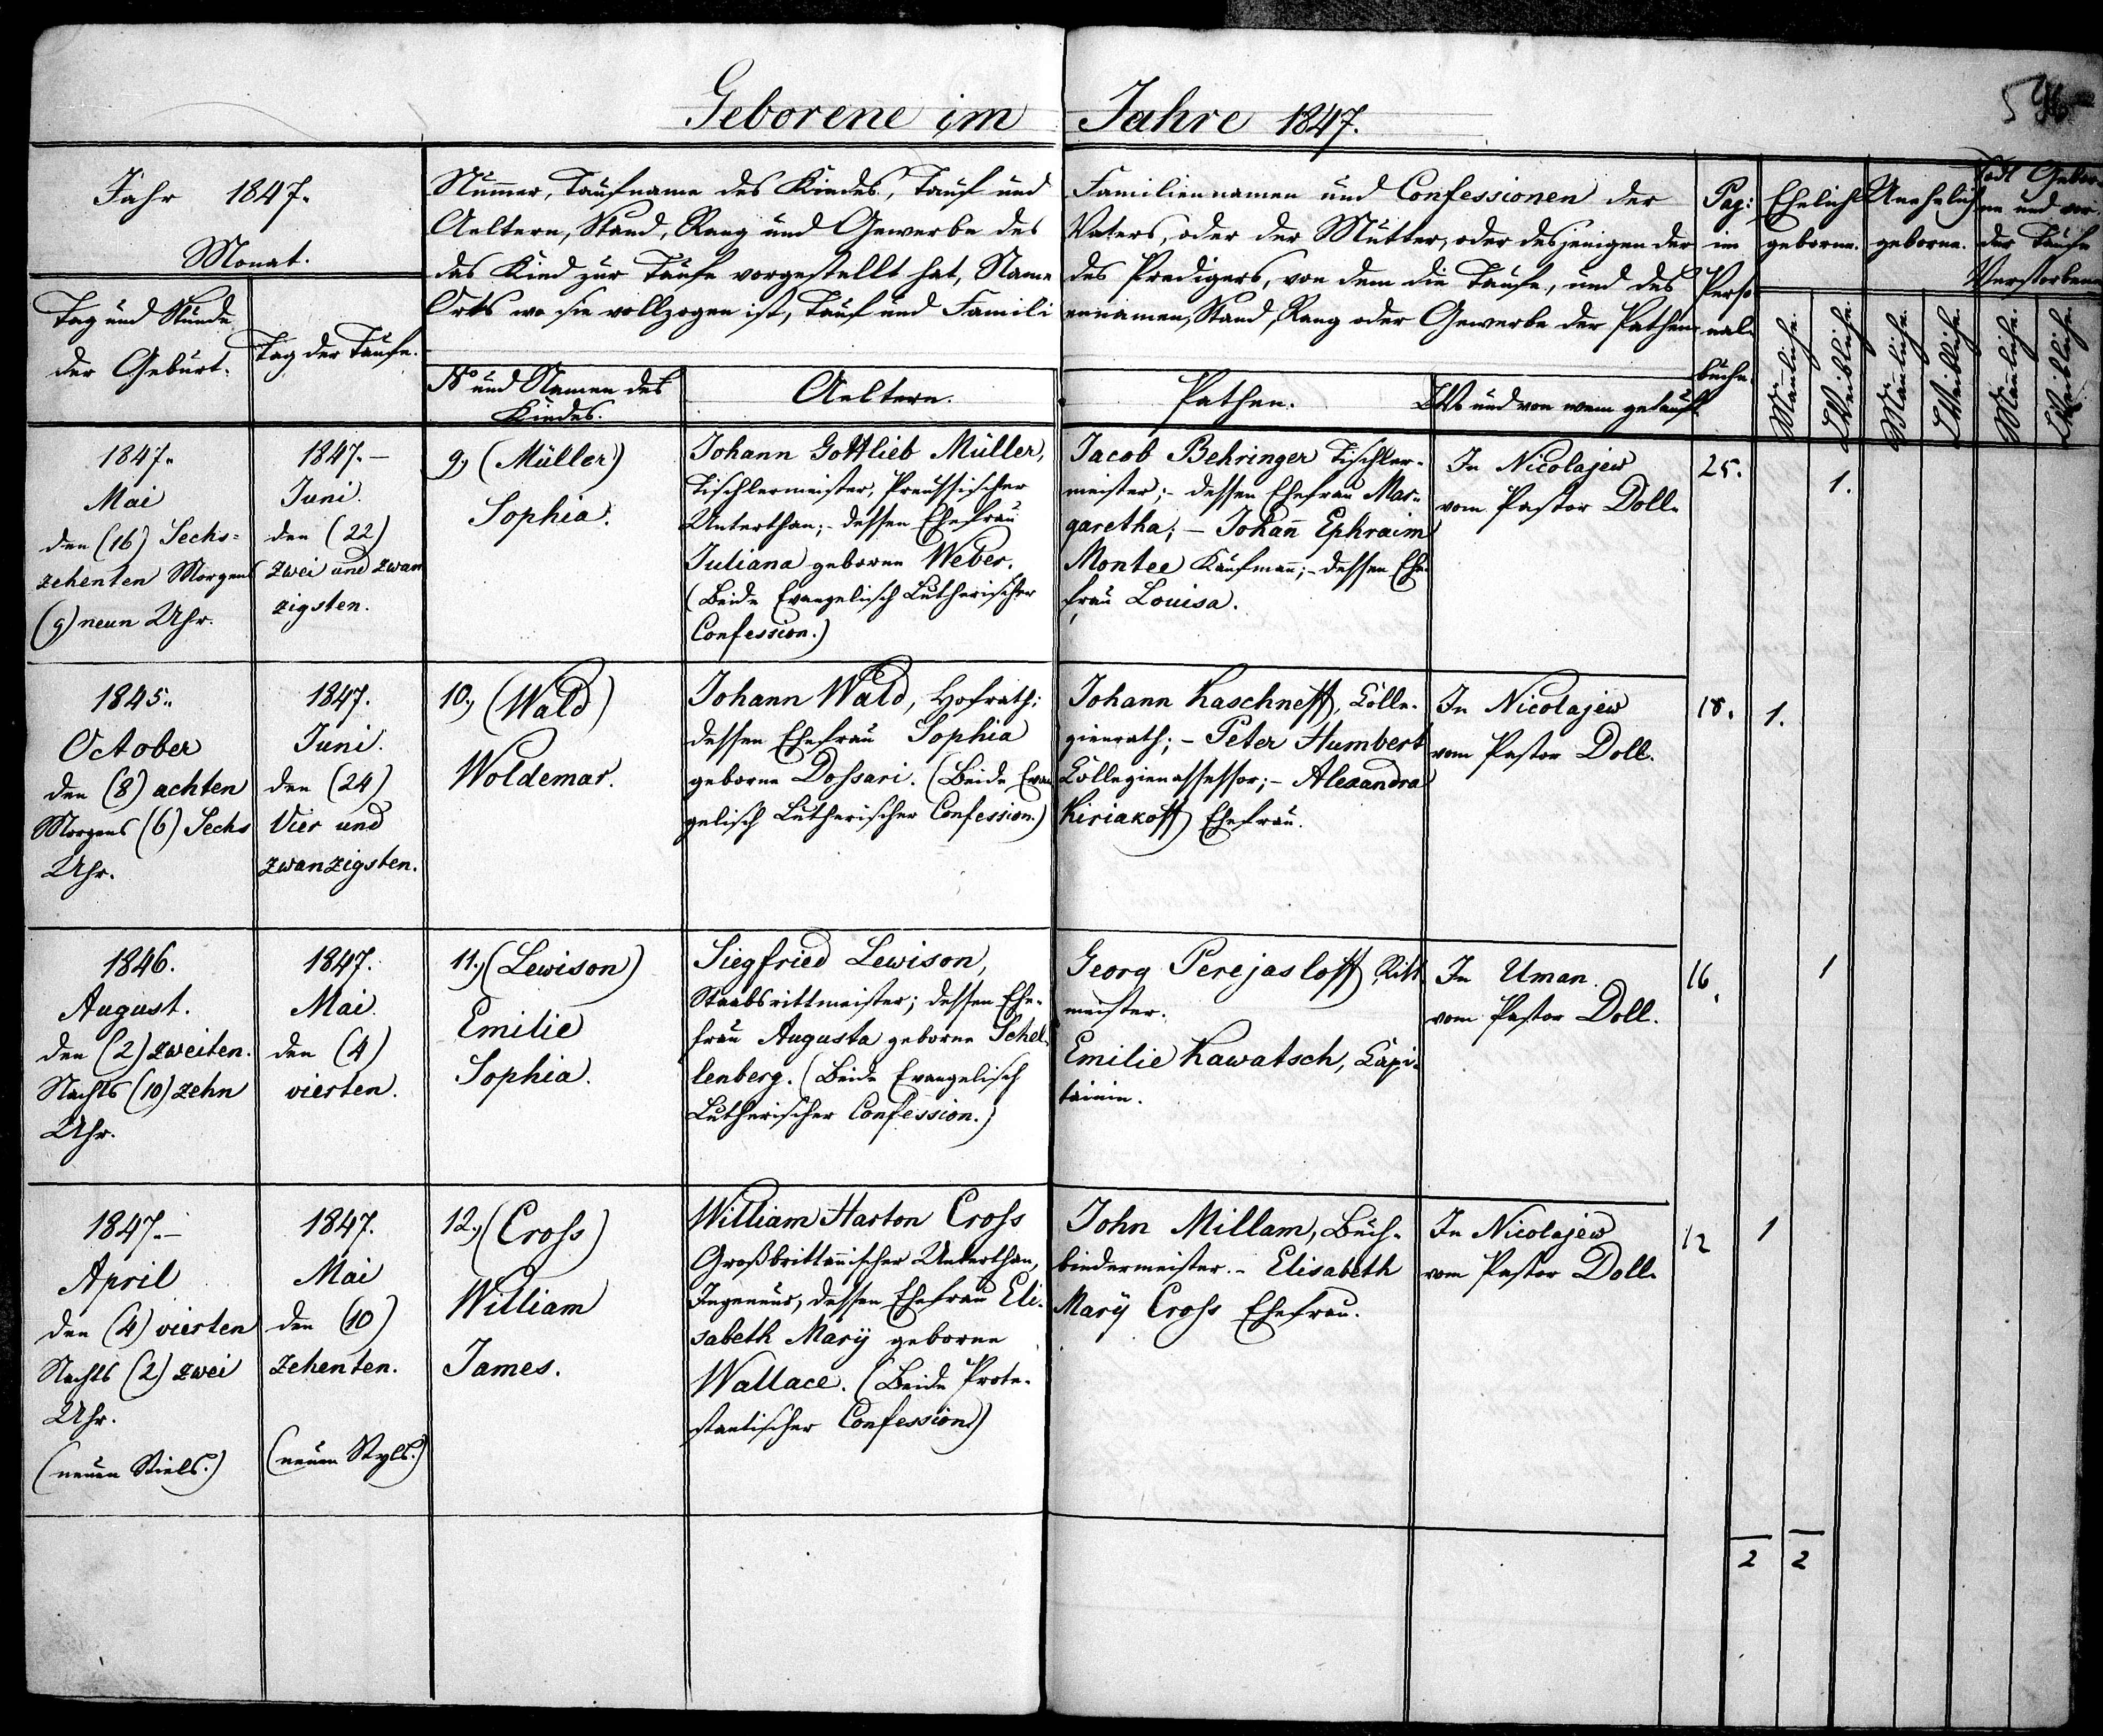 Geborene im Jahre 1847.
Jahr 1847.
Monat.
Tag und Stunde
der Geburt.
Tag der Taufe.
Numer, Taufname des Kindes, Tauf und Familiennamen und Confessionen der
Aeltern, Stand, Rang und Gewerbe des Vaters, oder der Mutter, oder desjenigen der
das Kind zur Taufe vorgestellt hat, Name des Predigers, von dem die Taufe, und des
Orts wo sie vollzogen ist, Tauf und Famili ennamen, Stand, Rang oder Gewerbe der Pathen.
No und Namen des
Kindes.
Aeltern.
Pathen.
Wo und von wem getauft.
Pag:
im
Perso
nal-
buche.
Ehelich
geborne.
Unehelich
geborne.
Todt Gebor-
ne und vor
der Taufe
Verstorbene
Mänliche.
Weibliche.
Mänliche.
Weibliche.
Mänliche.
Weibliche.
1847.
Mai
den (16) Sechs-
zehenten Morgens
(9) neun Uhr.
1847.-
Juni.
den (22)
zwei und zwan
zigsten.
9., (Müller)
Sophia.
Johann Gottlieb Müller,
Tischlermeister, Preussischer
Unterthan;- dessen Ehefrau
Juliana geborne Weber.
(Beide Evangelisch Lutherischer
Confession.)
Jacob Behringer Tischler-
meister;- dessen Ehefrau Mar-
garetha;- Johann Ephraim
Montee Kaufmann;- dessen Ehe-
frau Louisa.
In Nicolajew
vom Pastor Doll.
25.
1.
1845.
October
den (8) achten
Morgens (6) Sechs
Uhr.
1847.
Juni.
den (24)
Vier und
zwanzigsten.
10., (Wald)
Woldemar.
Johann Wald, Hofrath;
dessen Ehefrau Sophia
geborne Dossari. (Beide Evan
gelisch Lutherischer Confession.)
Johann Kaschneff, Colle-
gienrath;- Peter Humbert
Collegienassessor;- Alexandra
Kiriakoff Ehefrau.
In Nicolajew
vom Pastor Doll.
18.
1.
1846.
August.
den (2) zweiten.
Nachts (10) zehn
Uhr.
1847.
Mai.
den (4)
vierten.
11., (Lewison)
Emilie
Sophia.
Siegfried Lewison,
Staabsrittmeister; dessen Ehe-
frau Augusta geborne Schel-
lenberg. (Beide Evangelisch
Lutherischer Confession.)
Georg Perejasloff Ritt
meister.
Emilie Kawatsch, Capi-
tainin.
In Uman.
vom Pastor Doll.
16.
1
1847.-
April
den (4) vierten
Nachts (2) zwei
Uhr.
(neuen Stiels.)
1847.
Mai
den (10)
zehenten.
(neuen Styls.)
12., (Cross)
William
James.
William Harton Cross
Großbrittanischer Unterthan,
Ingeneur, dessen Ehefrau Eli-
sabeth Marÿ geborne
Wallace. (Beide Prote-
stantischer Confession.)
John Millam, Buch-
bindermeister.- Elisabeth
Marÿ Cross Ehefrau.
In Nicolajew
vom Pastor Doll.
12
1
2 2